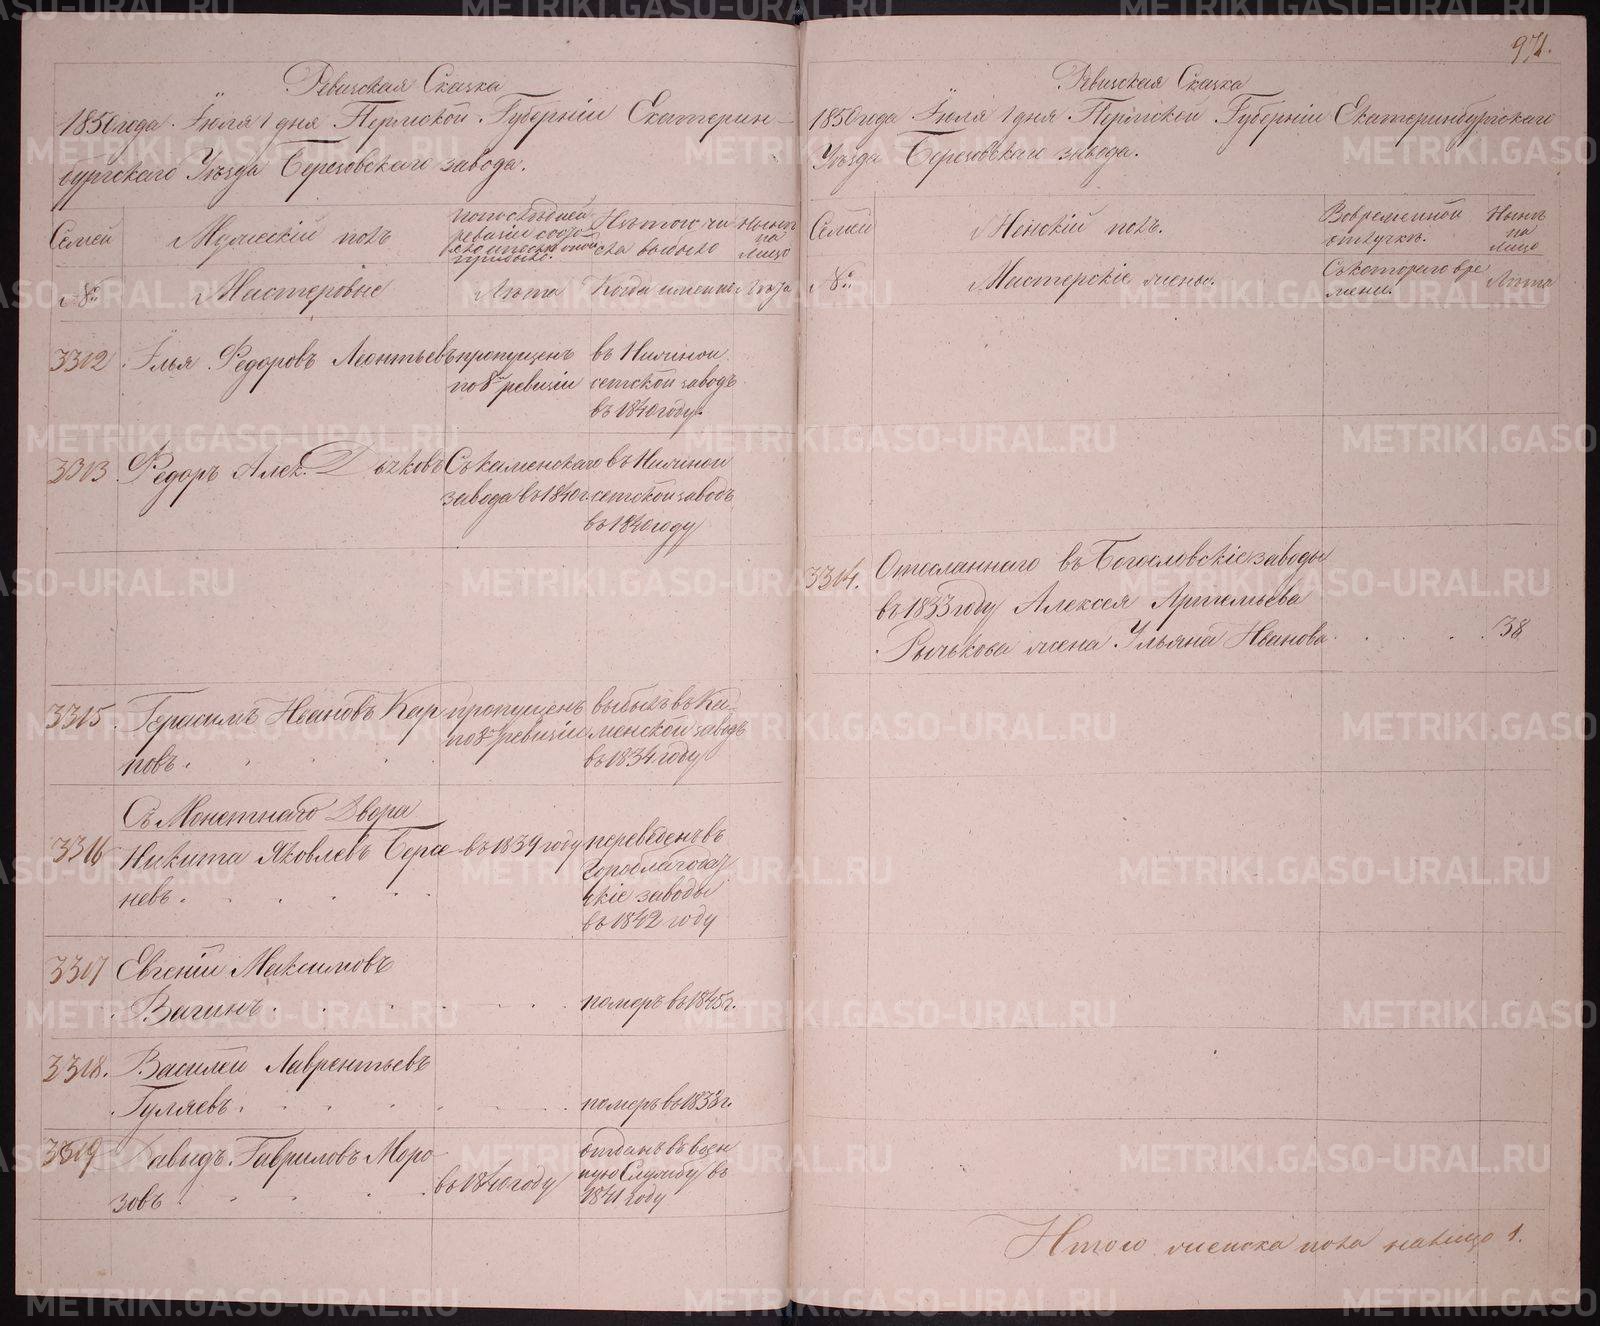 Ревизская Сказка
1850 года Іюля 1 дня Пермской Губерніи Екатерин-
бургскаго Уѣзда Березовскаго завода.
Семей
Мужескій полъ
по последней
ревизіи состо
Изъ того чи
сла выбыло
Нынѣ
на
лицо
№
Мастеровые
Лѣта
Когда именно
Лѣта
3312
Илья Федоровъ Леонтьевъ
пропущенъ
по 8й ревизіи
въ Нижнеи
сетской заводъ
въ 1840 году.
3313
Федоръ Алек.
Съ Каменскаго
завода въ 1840 г.
въ Нижнеи
сетской заводъ
въ 1840 году
3315
Герасимъ Ивановъ Кар
повъ.
пропущенъ
по 8й ревизіи
выбылъ въ Ка-
менской заводъ
въ 1834 году
Съ Монетнаго Двора
3316
Никита Яковлевъ Бера
невъ.
въ 1839 году
переведенъ въ
Гороблагодат
скіе заводы
въ 1842 году
3317
Евгеній Максимовъ
Вагинъ.
померъ въ 1845 г.
3318.
Василей Лаврентьевъ
Гуляевъ.
померъ въ 1838 г.
3319
Давидъ Гавриловъ Моро
зовъ
въ 1840 году
отданъ въ воен
ную Службу въ
1841 году
971.
Ревизская Сказка
1850 года Іюля 1 дня Пермской Губерніи Екатеринбургскаго
Уѣзда Березовскаго завода.
Семей
Женскій полъ.
Во временной
отлучкѣ.
Нынѣ
на
лицо
№
Мастерскіе жены.
Съ котораго вре
мени.
Лѣта
3314.
Отосланнаго въ Богословскіе заводы
въ 1833 году Алексея Артемьева
Рычькова жена Ульяна Иванова
38
Итого женска пола налицо 1.
METRIKI.GASO-URAL.RU